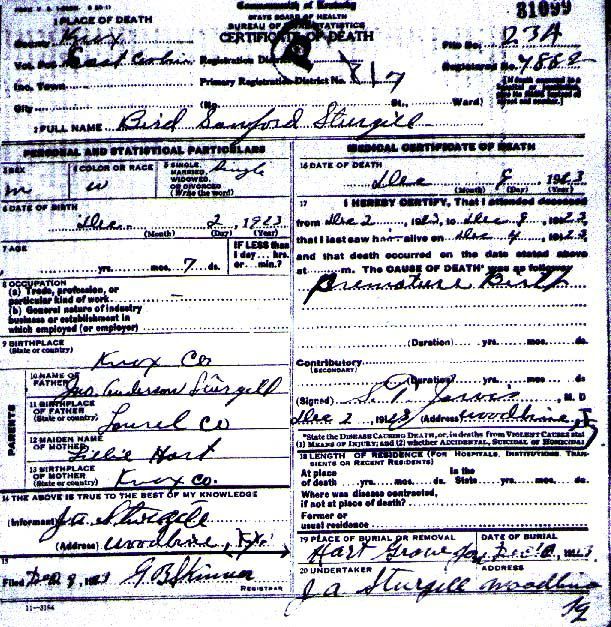 Commonwealth of Kentucky
STATE BOARD OF HEALTH
BUREAU OF VITAL STATISTICS
CERTIFICATE OF DEATH
31099
1 PLACE OF DEATH
County Knox
File No. 23A
Vot. Pct. East Corbin Registration District No. 817
Registered No.
Inc. Town Primary Registration District No.
City (No. St., Ward)
[If death occurred in a
2 FULL NAME Bird Sanford Sturgill
PERSONAL AND STATISTICAL PARTICULARS
3 SEX m
4 COLOR OR RACE w
5 SINGLE, MARRIED, WIDOWED, OR DIVORCED (Write the word) Single
6 DATE OF BIRTH
Dec. 2, 1923
(Month) (Day) (Year)
7 AGE
yrs. mos. 7 ds.
IF LESS than 1 day... hrs. or... min.?
8 OCCUPATION
(a) Trade, profession, or particular kind of work
(b) General nature of industry business or establishment in which employed (or employer)
9 BIRTHPLACE
(State or country)
Knox Co
PARENTS
10 NAME OF FATHER Jas. Anderson Sturgill
11 BIRTHPLACE OF FATHER
(State or country) Laurel Co
12 MAIDEN NAME OF MOTHER Lillie Hart
13 BIRTHPLACE OF MOTHER
(State or country) Knox Co.
14 THE ABOVE IS TRUE TO THE BEST OF MY KNOWLEDGE
(Informant) J a Sturgill
(Address) Woodbine, Ky.
15
Filed Dec 8, 1923 G B Skinner
REGISTRAR
11-3184
MEDICAL CERTIFICATE OF DEATH
16 DATE OF DEATH
Dec 8 1923
(Month) (Day) (Year)
17 I HEREBY CERTIFY, That I attended deceased
from Dec 2 1923, to Dec 8, 1923,
that I last saw him alive on Dec 4, 1923,
and that death occurred on the date stated above
at m. The CAUSE OF DEATH was as follows:
Premature Birth
(Duration) yrs. mos. ds.
Contributory
(SECONDARY)
(Duration) yrs. mos. ds
(Signed) , M. D
Dec 2, 1923 (Address) Woodbine,
*State the DISEASE CAUSING DEATH, or, in deaths from VIOLENT CAUSES state
(1) MEANS OF INJURY; and (2) whether ACCIDENTAL, SUICIDAL or HOMICIDAL
18 LENGTH OF RESIDENCE (FOR HOSPITALS, INSTITUTIONS, TRANSIENTS OR RECENT RESIDENTS)
At place of death yrs. mos. ds. In the State yrs. mos. ds
Where was disease contracted,
if not at place of death?
Former or
usual residence
19 PLACE OF BURIAL OR REMOVAL DATE OF BURIAL
Hart Grove
20 UNDERTAKER ADDRESS
J a Sturgill Woodbine
Ky